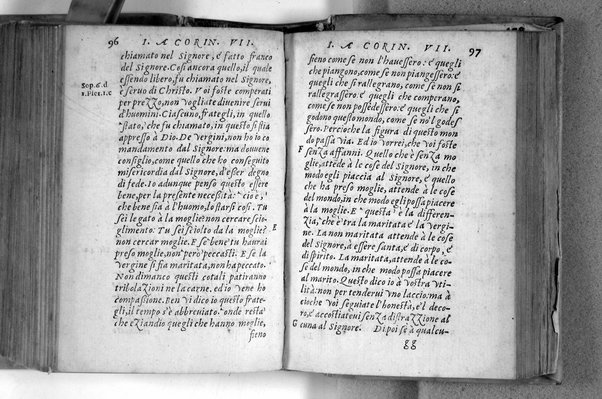 96 I. A CORIN. VII.
chiamato nel Signore, è fatto franco
del Signore. Cosi ancora quello, il quale
essendo libero, fu chiamato nel Signore,
è servo di Christo. Voi foste comperati
per prezzo, non vogliate divenire servi
d'huomini. Ciascuno, frategli, in quello
stato, che fu chiamato, in questo si stia
appresso à Dio. De vergini, non ho io co
mandamento dal Signore: ma dovene
consiglio, come quello che ho conseguito
misericordia dal Signore, d'esser degno
di fede. Io adunque penso questo essere
bene, per la presente necessità: cioè,
che bene sia à l'huomo, lo starsi cosi. Tu
sei legato à la moglie: non cercare scio-
glimento. Tu sei sciolto da la moglie:
non cercar moglie. E se bene tu haurai
preso moglie, non però peccasti. E se la
vergine si sia maritata, non ha peccato.
Non dimanco questi cotali patiranno
tribolazioni ne la carne. ed io vene ho
compassione. Ben vi dico io questo frate-
gli, il tempo s'è abbreviato. onde resta
che eziandio quegli che hanno moglie,
sieno
Sop. 6. d
1. Piet. 1. c
E
I. A CORIN. VII. 97
sieno come se non l'havessero: e quegli
che piangono, come se non piangessero: e
quegli che si rallegrano, come se non si
rallegrassero. e quegli che comperano,
come se non possedessero: e quegli che si
godono questo mondo, come se no'l godes
sero. Percioche la figura di questo mon
do passa via. Ed io vorrei, che voi foste
F senza affanni. Quello che è senza mo
glie, attède à le cose del Signore, in che
modo egli piaccia al Signore, e quello
che ha preso moglie, attède à le cose
del mondo, in che modo egli possa piacere
à la moglie. E questa è la differen-
zia, che è tra la maritata e la vergi-
ne. La non maritata attende à le cose
del Signore, à essere santa, e di corpo, e
di spirito. La maritata, attende à le co-
se del mondo, in che modo possa piacere
al marito. Questo dico io à vostra uti-
lità: non per tendervi uno laccio: ma à
cioche voi seguiate l'honesta, e'l deco-
ro, e accostiatevi senza distrazzione al
G cuna al Signore. Di poi se à qualcu-
gg